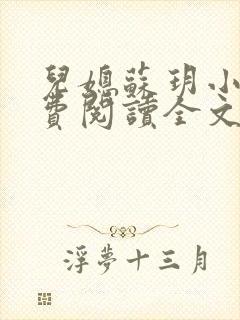 兒媳蘇玥小
費閱讀全文
浮夢十三月